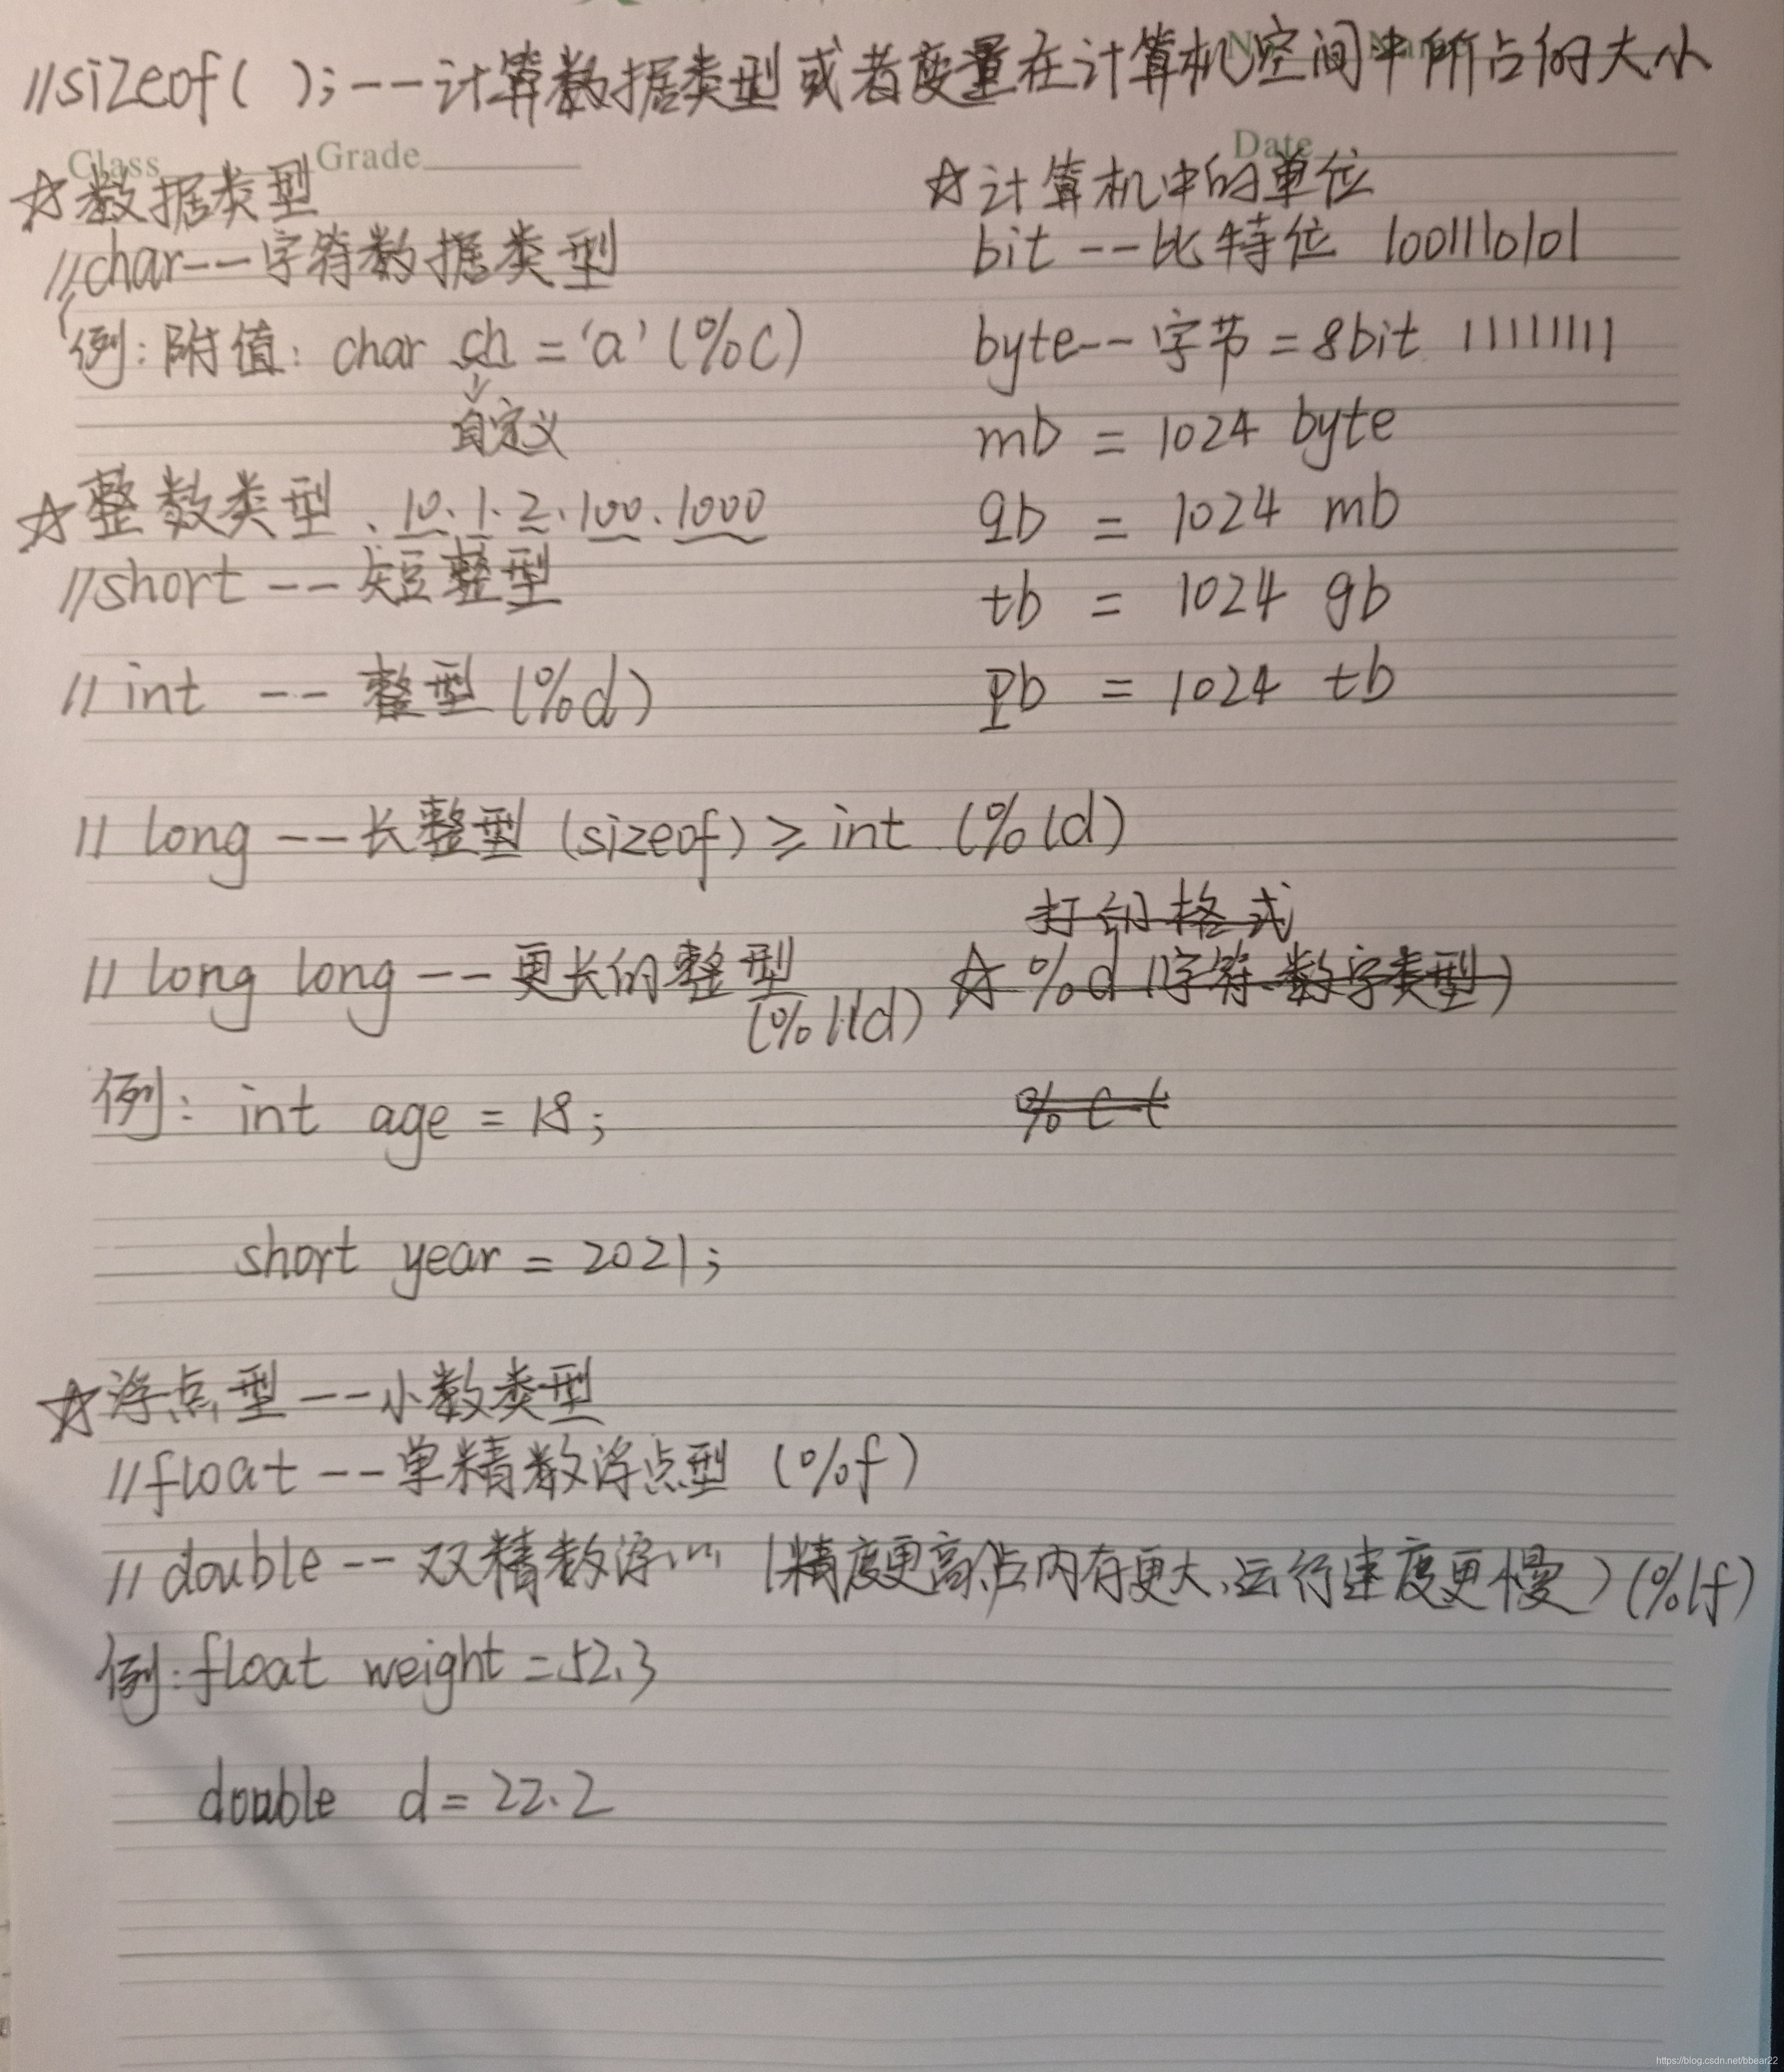 //sizeof( );--计算数据类型或者变量在计算机空间中所占的大小
Class Grade
Date
☆数据类型
//char--字符数据类型
例:附值: char ch = 'a' (%c)
自定义
☆整数类型、10、1、2、100、1000
//short -- 短整型
// int -- 整型 (%d)
☆计算机中的单位
bit --比特位 1001110101
byte--字节 = 8bit 11111111
mb = 1024 byte
gb = 1024 mb
tb = 1024 gb
pb = 1024 tb
// long --长整型 (sizeof) ≥ int (%ld)
// long long --更长的整型
(%lld)
打印格式
☆ %d (字符、数字类型)
例: int age = 18;
short year = 2021;
☆浮点型--小数类型
//float --单精数浮点型 (%f)
// double -- 双精数浮… (精度更高、占内存更大、运行速度更慢) (%lf)
例:float weight =52.3
double d = 22.2
https://blog.csdn.net/bbear22